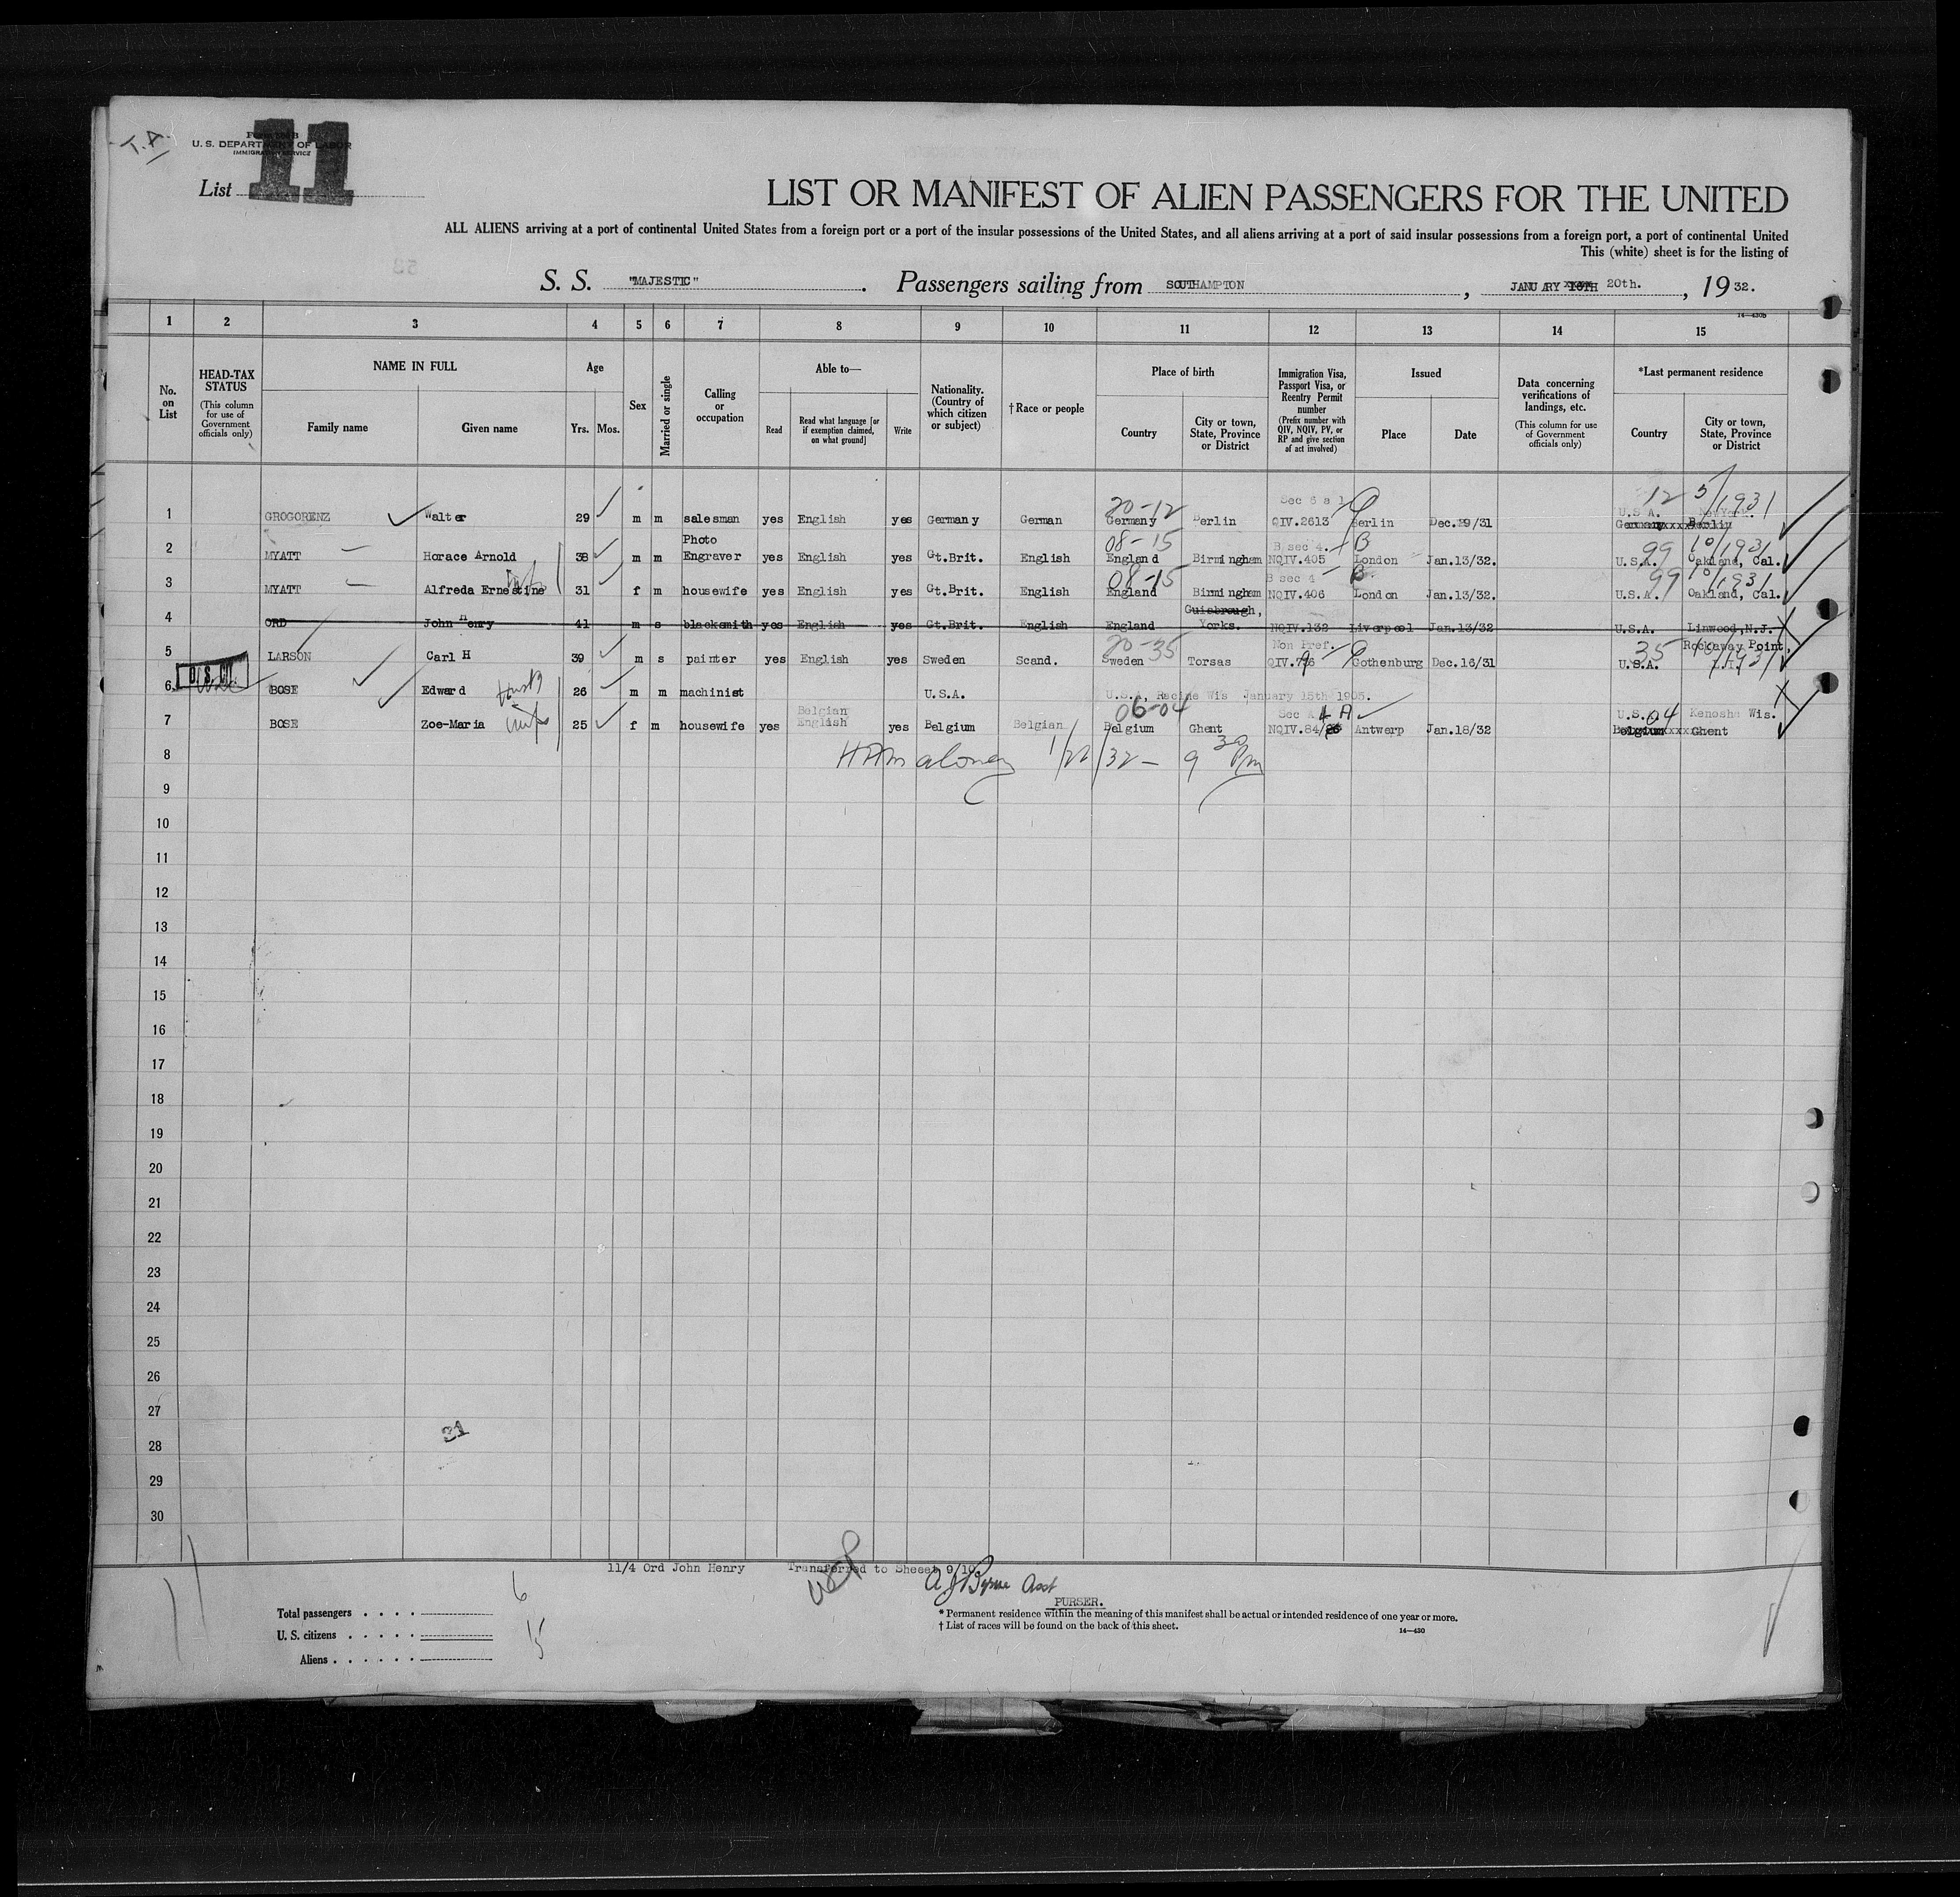 T.A.
Form 500 B
U. S. DEPARTMENT OF LABOR
IMMIGRATION SERVICE
List 11
LIST OR MANIFEST OF ALIEN PASSENGERS FOR THE UNITED
ALL ALIENS arriving at a port of continental United States from a foreign port or a port of the insular possessions of the United States, and all aliens arriving at a port of said insular possessions from a foreign port, a port of continental United
This (white) sheet is for the listing of
S. S. "MAJESTIC". Passengers sailing from SOUTHAMPTON, JANUARY 20th., 1932.
14—430B
1 2 3 4 5 6 7 8 9 10 11 12 13 14 15
No. on List
HEAD-TAX STATUS (This column for use of Government officials only)
NAME IN FULL
Family name
Given name
Age
Yrs. Mos.
Sex
Married or single
Calling or occupation
Able to—
Read
Read what language [or if exemption claimed, on what ground]
Write
Nationality. (Country of which citizen or subject)
†Race or people
Place of birth
Country
City or town, State, Province or District
Immigration Visa, Passport Visa, or Reentry Permit number (Prefix number with QIV, NQIV, PV, or RP and give section of act involved)
Issued
Place
Date
Data concerning verifications of landings, etc. (This column for use of Government officials only)
*Last permanent residence
Country
City or town, State, Province or District
20-12 12 5/1931
U.S.A. NewYork.
1 GROGORENZ Walter 29 m m salesman yes English yes Germany German Germany Berlin QIV.2613 Berlin Dec.29/31 Germany Berlin
Photo 08-15 B sec 4. B 99 10/1931
2 MYATT Horace Arnold 38 m m Engraver yes English yes Gt.Brit. English England Birmingham NQIV.405 London Jan.13/32. U.S.A. Oakland, Cal.
08-15 B sec 4 B 99 10/1931
3 MYATT Alfreda Ernestine 31 f m housewife yes English yes Gt.Brit. English England Birmingham NQIV.406 London Jan.13/32. U.S.A. Oakland, Cal.
Guisbrough,
4 ORD John Henry 41 m s blacksmith yes English yes Gt.Brit. English England Yorks. NQIV.132 Liverpool Jan.13/32 U.S.A. Linwood,N.J.
20-35 Non Pref. 35 Rockaway Point,
5 LARSON Carl H 39 m s painter yes English yes Sweden Scand. Sweden Torsas QIV.796 Gothenburg Dec.16/31 U.S.A. L.I.
U.S.C.
6 BOSE Edward 26 m m machinist U.S.A. U.S.A, Racine Wis January 15th 1905.
Belgian 06-04 4 A U.S.A. 04 Kenosha Wis.
7 BOSE Zoe-Maria wife 25 f m housewife yes English yes Belgium Belgian Belgium Ghent NQIV.84/ Antwerp Jan.18/32 Belgium Ghent
8 HAMaloney 1/22/32 - 9 30 Pm
9
10
11
12
13
14
15
16
17
18
19
20
21
22
23
24
25
26
27
28
29
30
31
11/4 Ord John Henry Transferred to Sheeet 9/10
A J Byrne Asst
PURSER.
Total passengers . . . . 6
U. S. citizens . . . . .
Aliens . . . . . .
* Permanent residence within the meaning of this manifest shall be actual or intended residence of one year or more.
† List of races will be found on the back of this sheet.
14—430